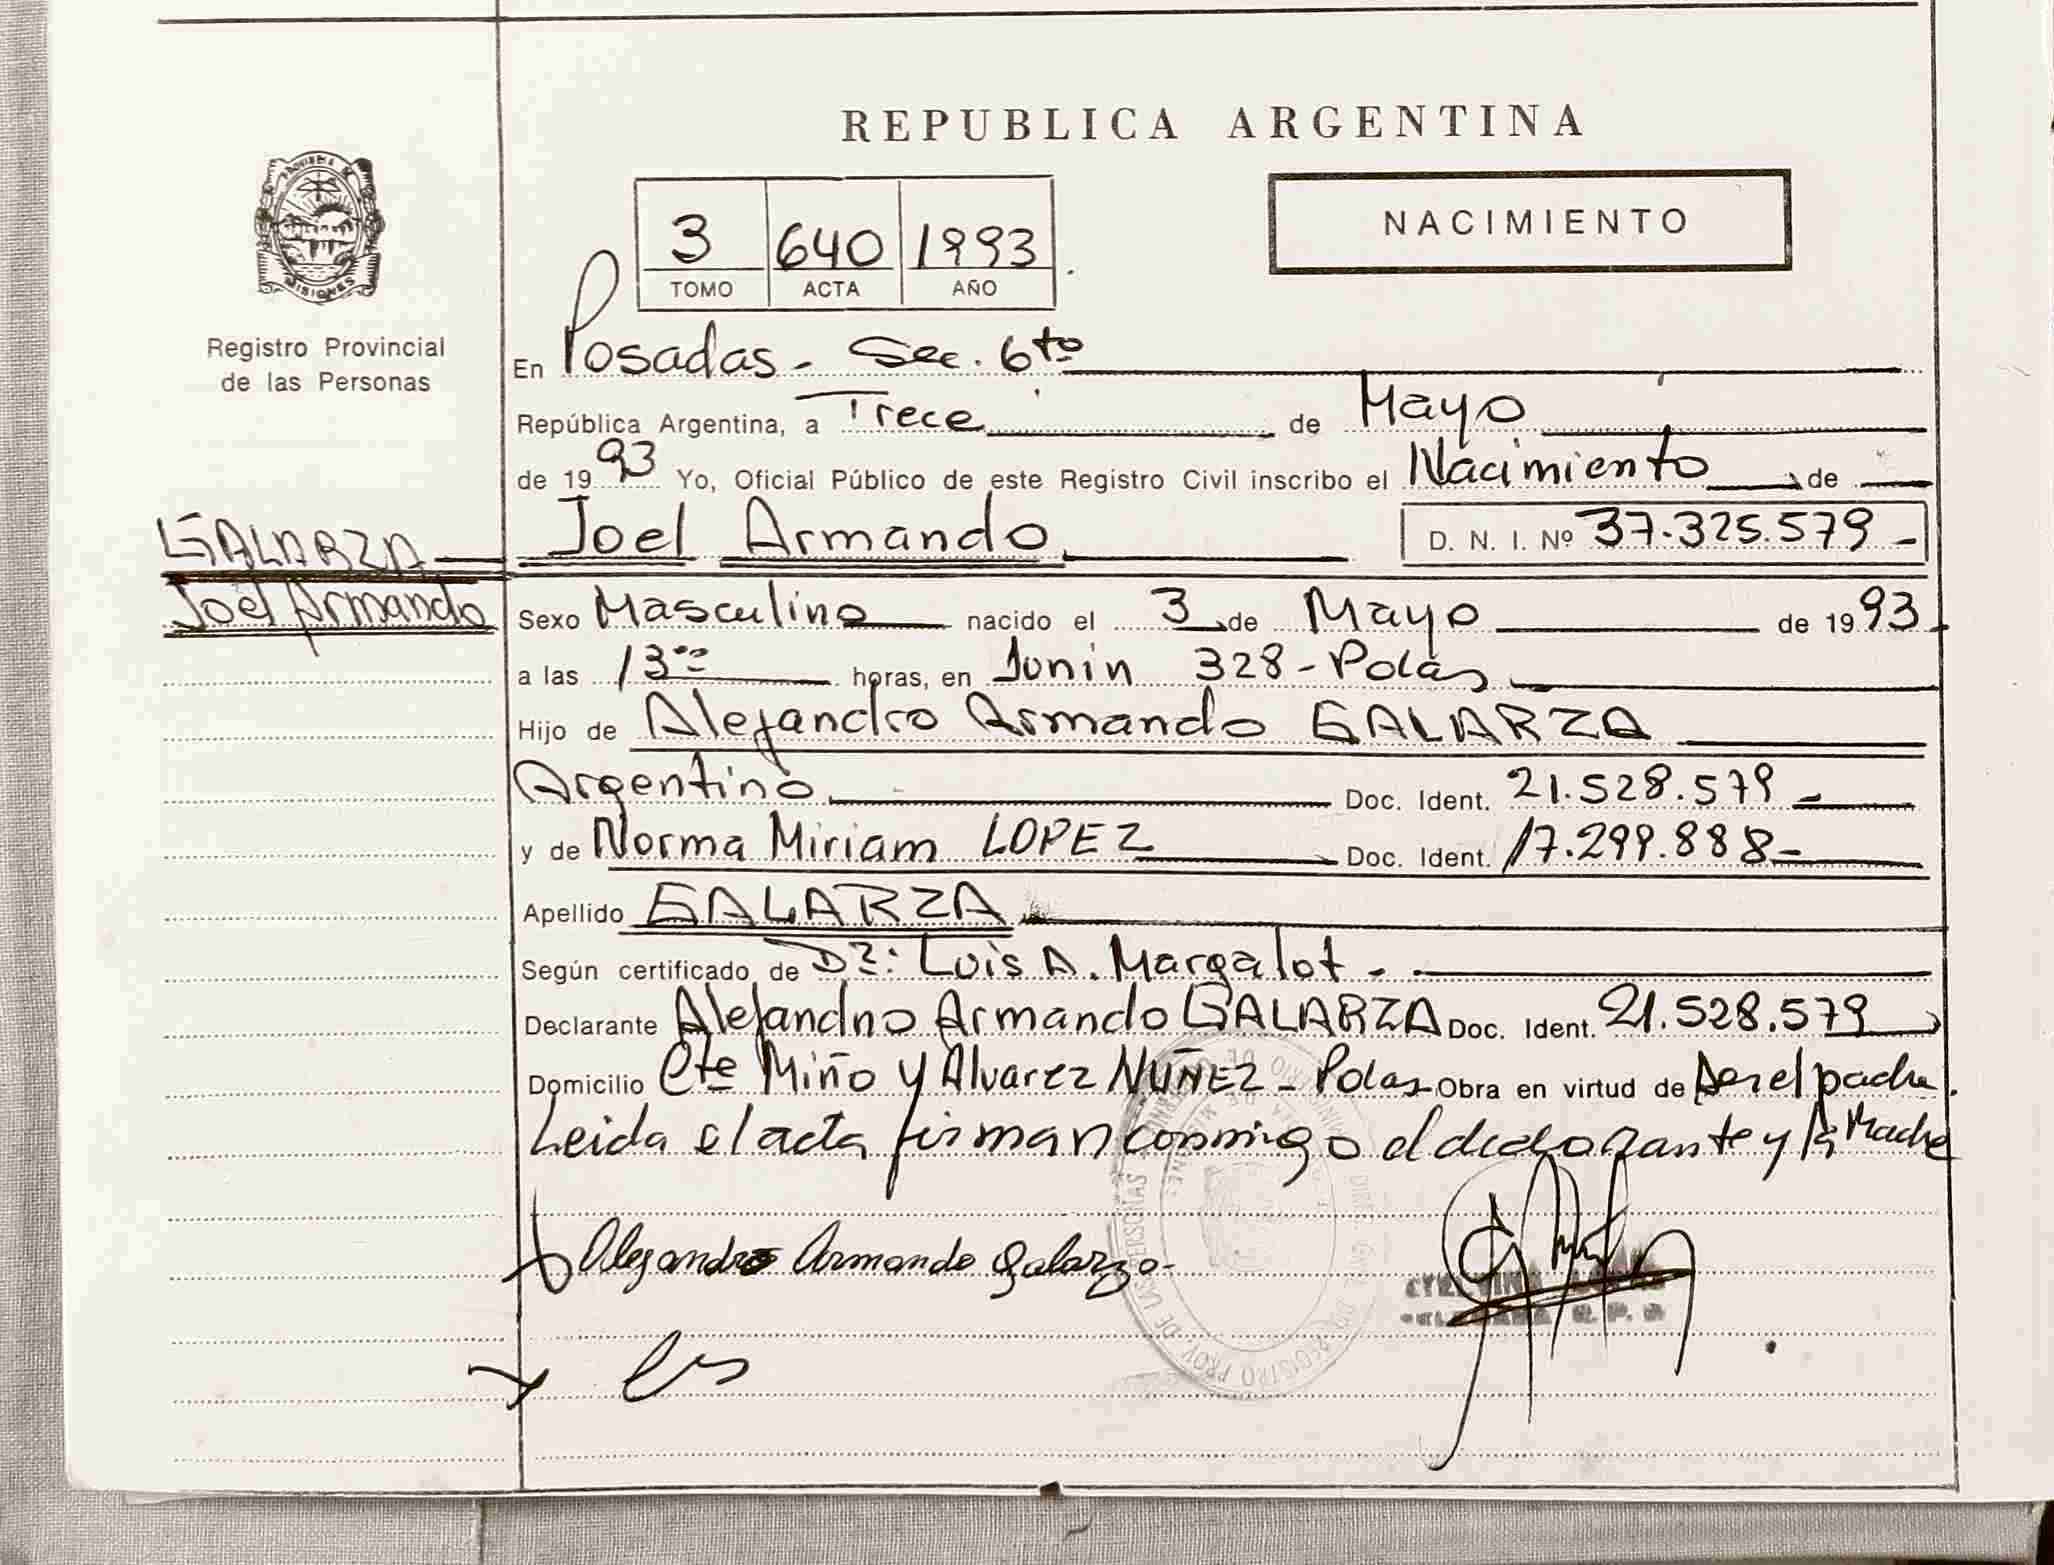 REPUBLICA ARGENTINA
PROVINCIA
MISIONES
Registro Provincial
de las Personas
3 640 1993
TOMO ACTA AÑO
NACIMIENTO
En Posadas - Sec. 6ta
República Argentina, a Trece de Mayo
de 1993 Yo, Oficial Público de este Registro Civil inscribo el Nacimiento de
GALARZA
Joel Armando
Joel Armando D. N. I. Nº 37.325.579 -
Sexo Masculino nacido el 3 de Mayo de 1993
a las 13 00 horas, en Junin 328 - Pdas
Hijo de Alejandro Armando GALARZA
Argentino Doc. Ident. 21.528.579 -
y de Norma Miriam LOPEZ Doc. Ident. 17.299.888 -
Apellido GALARZA
Según certificado de Dr: Luis A. Margalot -
Declarante Alejandro Armando GALARZA Doc. Ident. 21.528.579
Domicilio Cte Miño y Alvarez NUÑEZ - Pdas - Obra en virtud de ser el padre.
Leida el acta firman conmigo el declarante y la Madre
Alejandro Armando Galarza